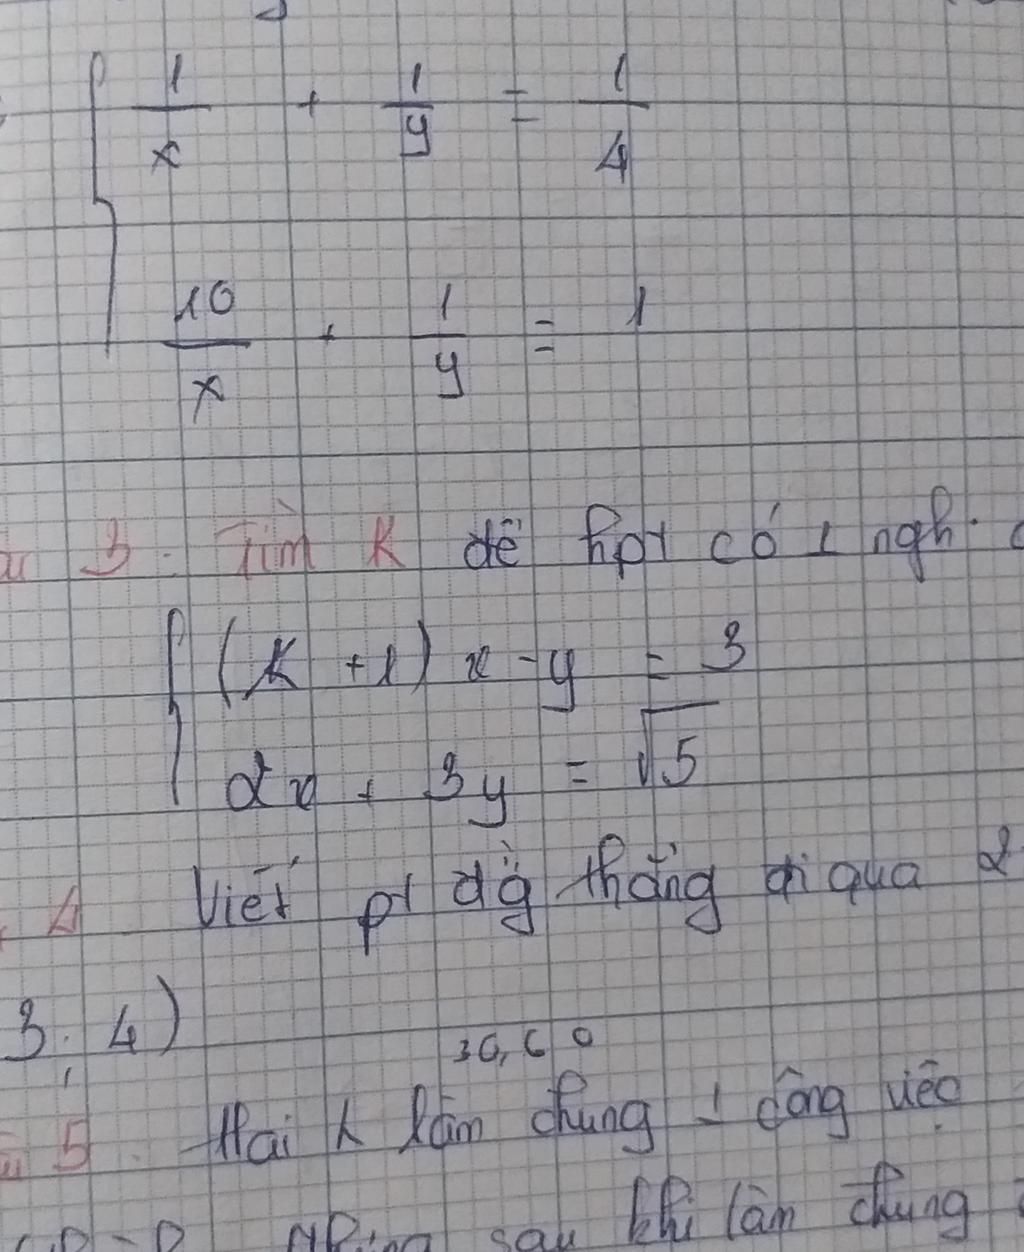 1/x + 1/y = 1/4
10/x + 1/y = 1
3. Tìm K để hpt có 1 ngh.
(K + 1) x - y = 3
2x + 3y = √5
4 Viết pt đg thẳng đi qua 2
3. 4)
30, 60
5. Hai k làm chung 1 công việc
sau khi làm chung